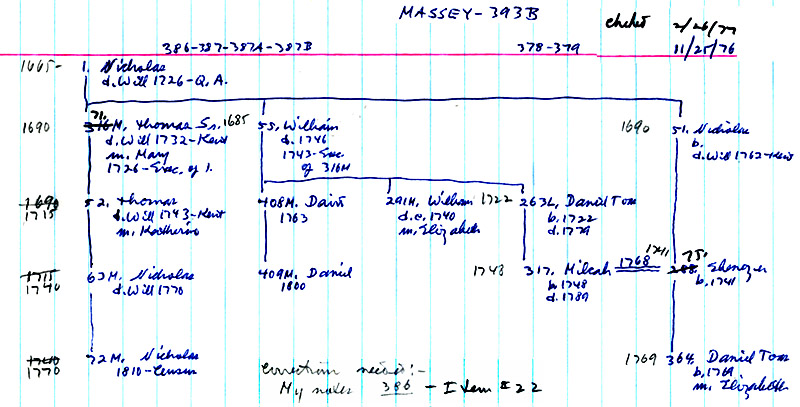 MASSEY-393B
2/26/77
386-387-387A-387B 378-379 11/25/76
1665- 1. Nicholas
d. Will 1726-Q.A.
1690 316M. 71. Thomas Sr. 1685
d. Will 1732-Kent
m. Mary
1726-Exec. of 1.
55. William
d. 1746
1743-Exec.
of 316M
1690 51. Nicholas
b.
d. Will 1762-Kent
1690
1715
52. Thomas
d. Will 1743-Kent
m. Katherine
408M. David
1763
291M. William
d.c. 1740
m. Elizabeth
1722 263L. Daniel Tom
b. 1722
d. 1779
1715
1740
63M. Nicholas
d. Will 1770
409M. Daniel
1800
1748 317. Milcah
b. 1748
d. 1789
1768
1741
75. Ebenezer
b. 1741
1740
1770
72M. Nicholas
1810-Census
1769 364. Daniel Tom
b. 1769
m. Elizabeth
correction needed:-
My notes 386 - Item #22